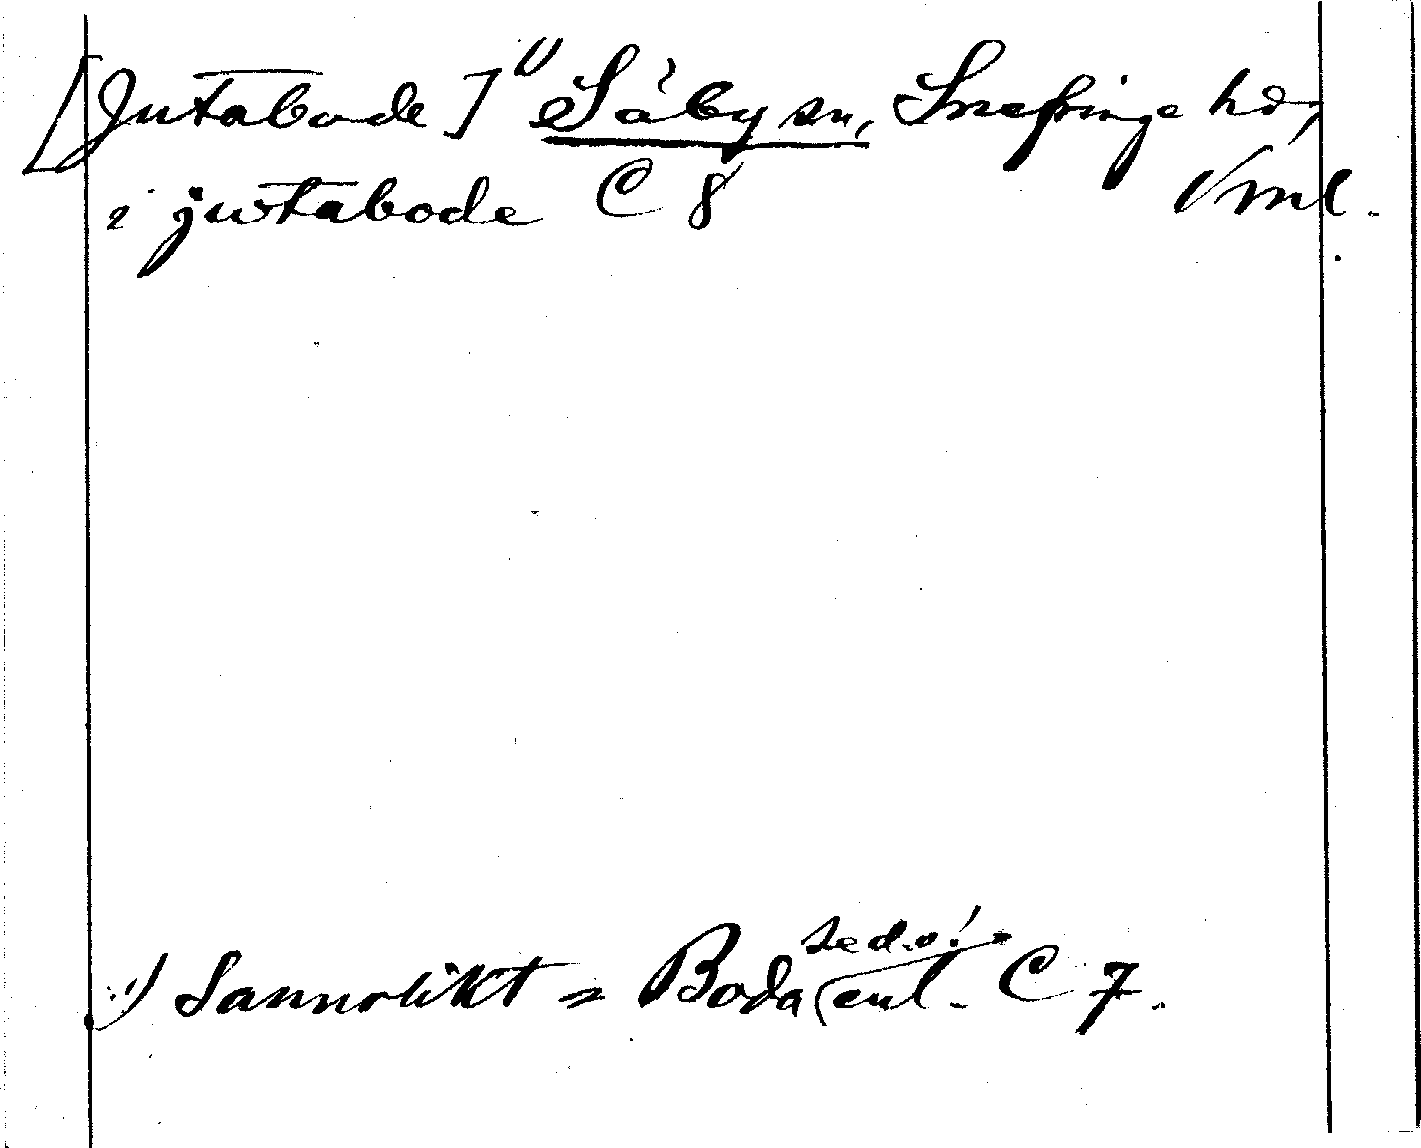 [Jutabode]¹⁾ Säby sn, Snefringe hd,
Vml.
i jwtabode C 8
¹⁾ Sannolikt = Boda enl. C 7.
se d.o!